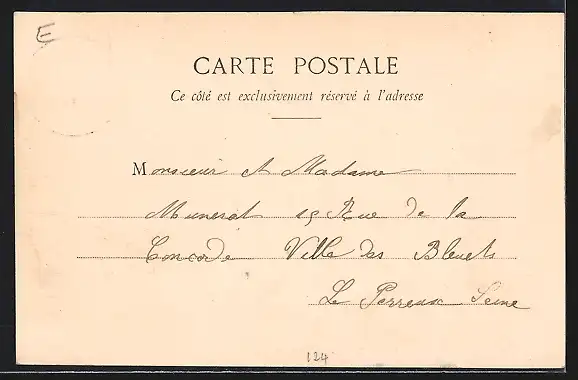 E
CARTE POSTALE
Ce côté est exclusivement réservé à l'adresse
Monsieur et Madame
Munerat 19 Rue de la
Concorde Ville des Bleuets
Le Perreux Seine
124